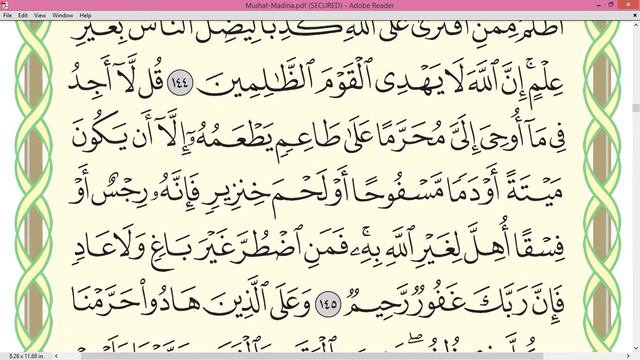 Mushaf-Madina.pdf (SECURED) - Adobe Reader
File Edit View Window Help
أَظْلَمُ مِمَّنِ ٱفْتَرَىٰ عَلَى ٱللَّهِ كَذِبًا لِّيُضِلَّ ٱلنَّاسَ بِغَيْرِ
عِلْمٍ ۚ إِنَّ ٱللَّهَ لَا يَهْدِى ٱلْقَوْمَ ٱلظَّٰلِمِينَ ١٤٤ قُل لَّآ أَجِدُ
فِى مَآ أُوحِىَ إِلَىَّ مُحَرَّمًا عَلَىٰ طَاعِمٍ يَطْعَمُهُۥٓ إِلَّآ أَن يَكُونَ
مَيْتَةً أَوْ دَمًا مَّسْفُوحًا أَوْ لَحْمَ خِنزِيرٍ فَإِنَّهُۥ رِجْسٌ أَوْ
فِسْقًا أُهِلَّ لِغَيْرِ ٱللَّهِ بِهِۦ ۚ فَمَنِ ٱضْطُرَّ غَيْرَ بَاغٍ وَلَا عَادٍ
فَإِنَّ رَبَّكَ غَفُورٌ رَّحِيمٌ ١٤٥ وَعَلَى ٱلَّذِينَ هَادُوا۟ حَرَّمْنَا
8.26 x 11.68 in